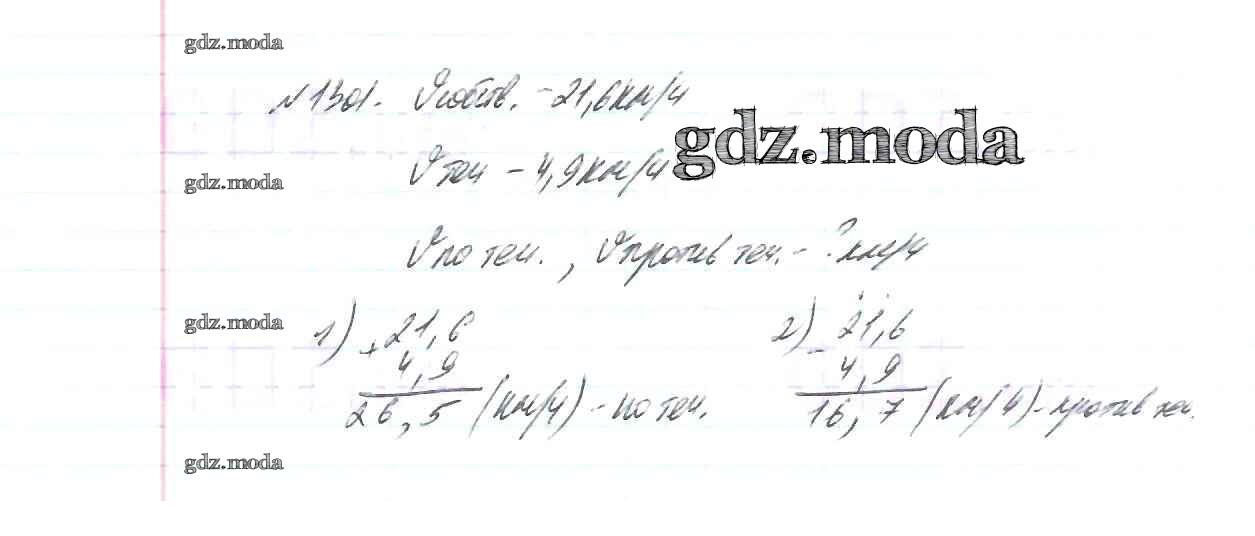 gdz.moda
№1301. Vсобств. - 21,6км/ч
gdz.moda
Vтеч - 4,9км/ч
gdz.moda
Vпо теч. , Vпротив теч. - ? км/ч
gdz.moda
1) + 21,6
4,9
26,5 (км/ч) - по теч.
2) - 21,6
4,9
16,7 (км/ч) - против теч.
gdz.moda